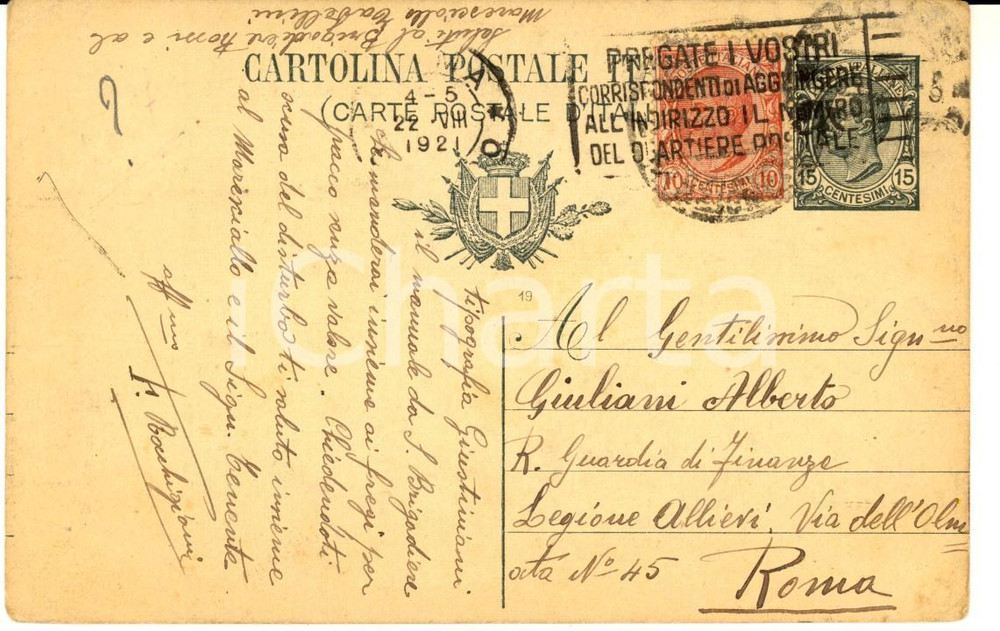 Saluti al Brigadiere Tossi e al
Maresciallo
CARTOLINA POSTALE
(CARTE POSTALE D'ITALIE)
4-5
22 VIII
1921
PREGATE I VOSTRI
CORRISPONDENTI DI AGGIUNGERE
ALL'INDIRIZZO IL NUMERO
DEL QUARTIERE POSTALE
10 CENTESIMI 10
15 CENTESIMI 15
19
iCharta
tipografia Giustiniani
il manuale da S. Brigadiere
manderai insieme ai fregi per
senza valore. Chiedendoti
scusa del disturbo ti saluto insieme
al Maresciallo e il Sign. Tenente
aff.mo
Al Gentilissimo Sign.no
Giuliani Alberto
R. Guardia di Finanze
Legione Allievi Via dell'Olm
ata No 45
Roma